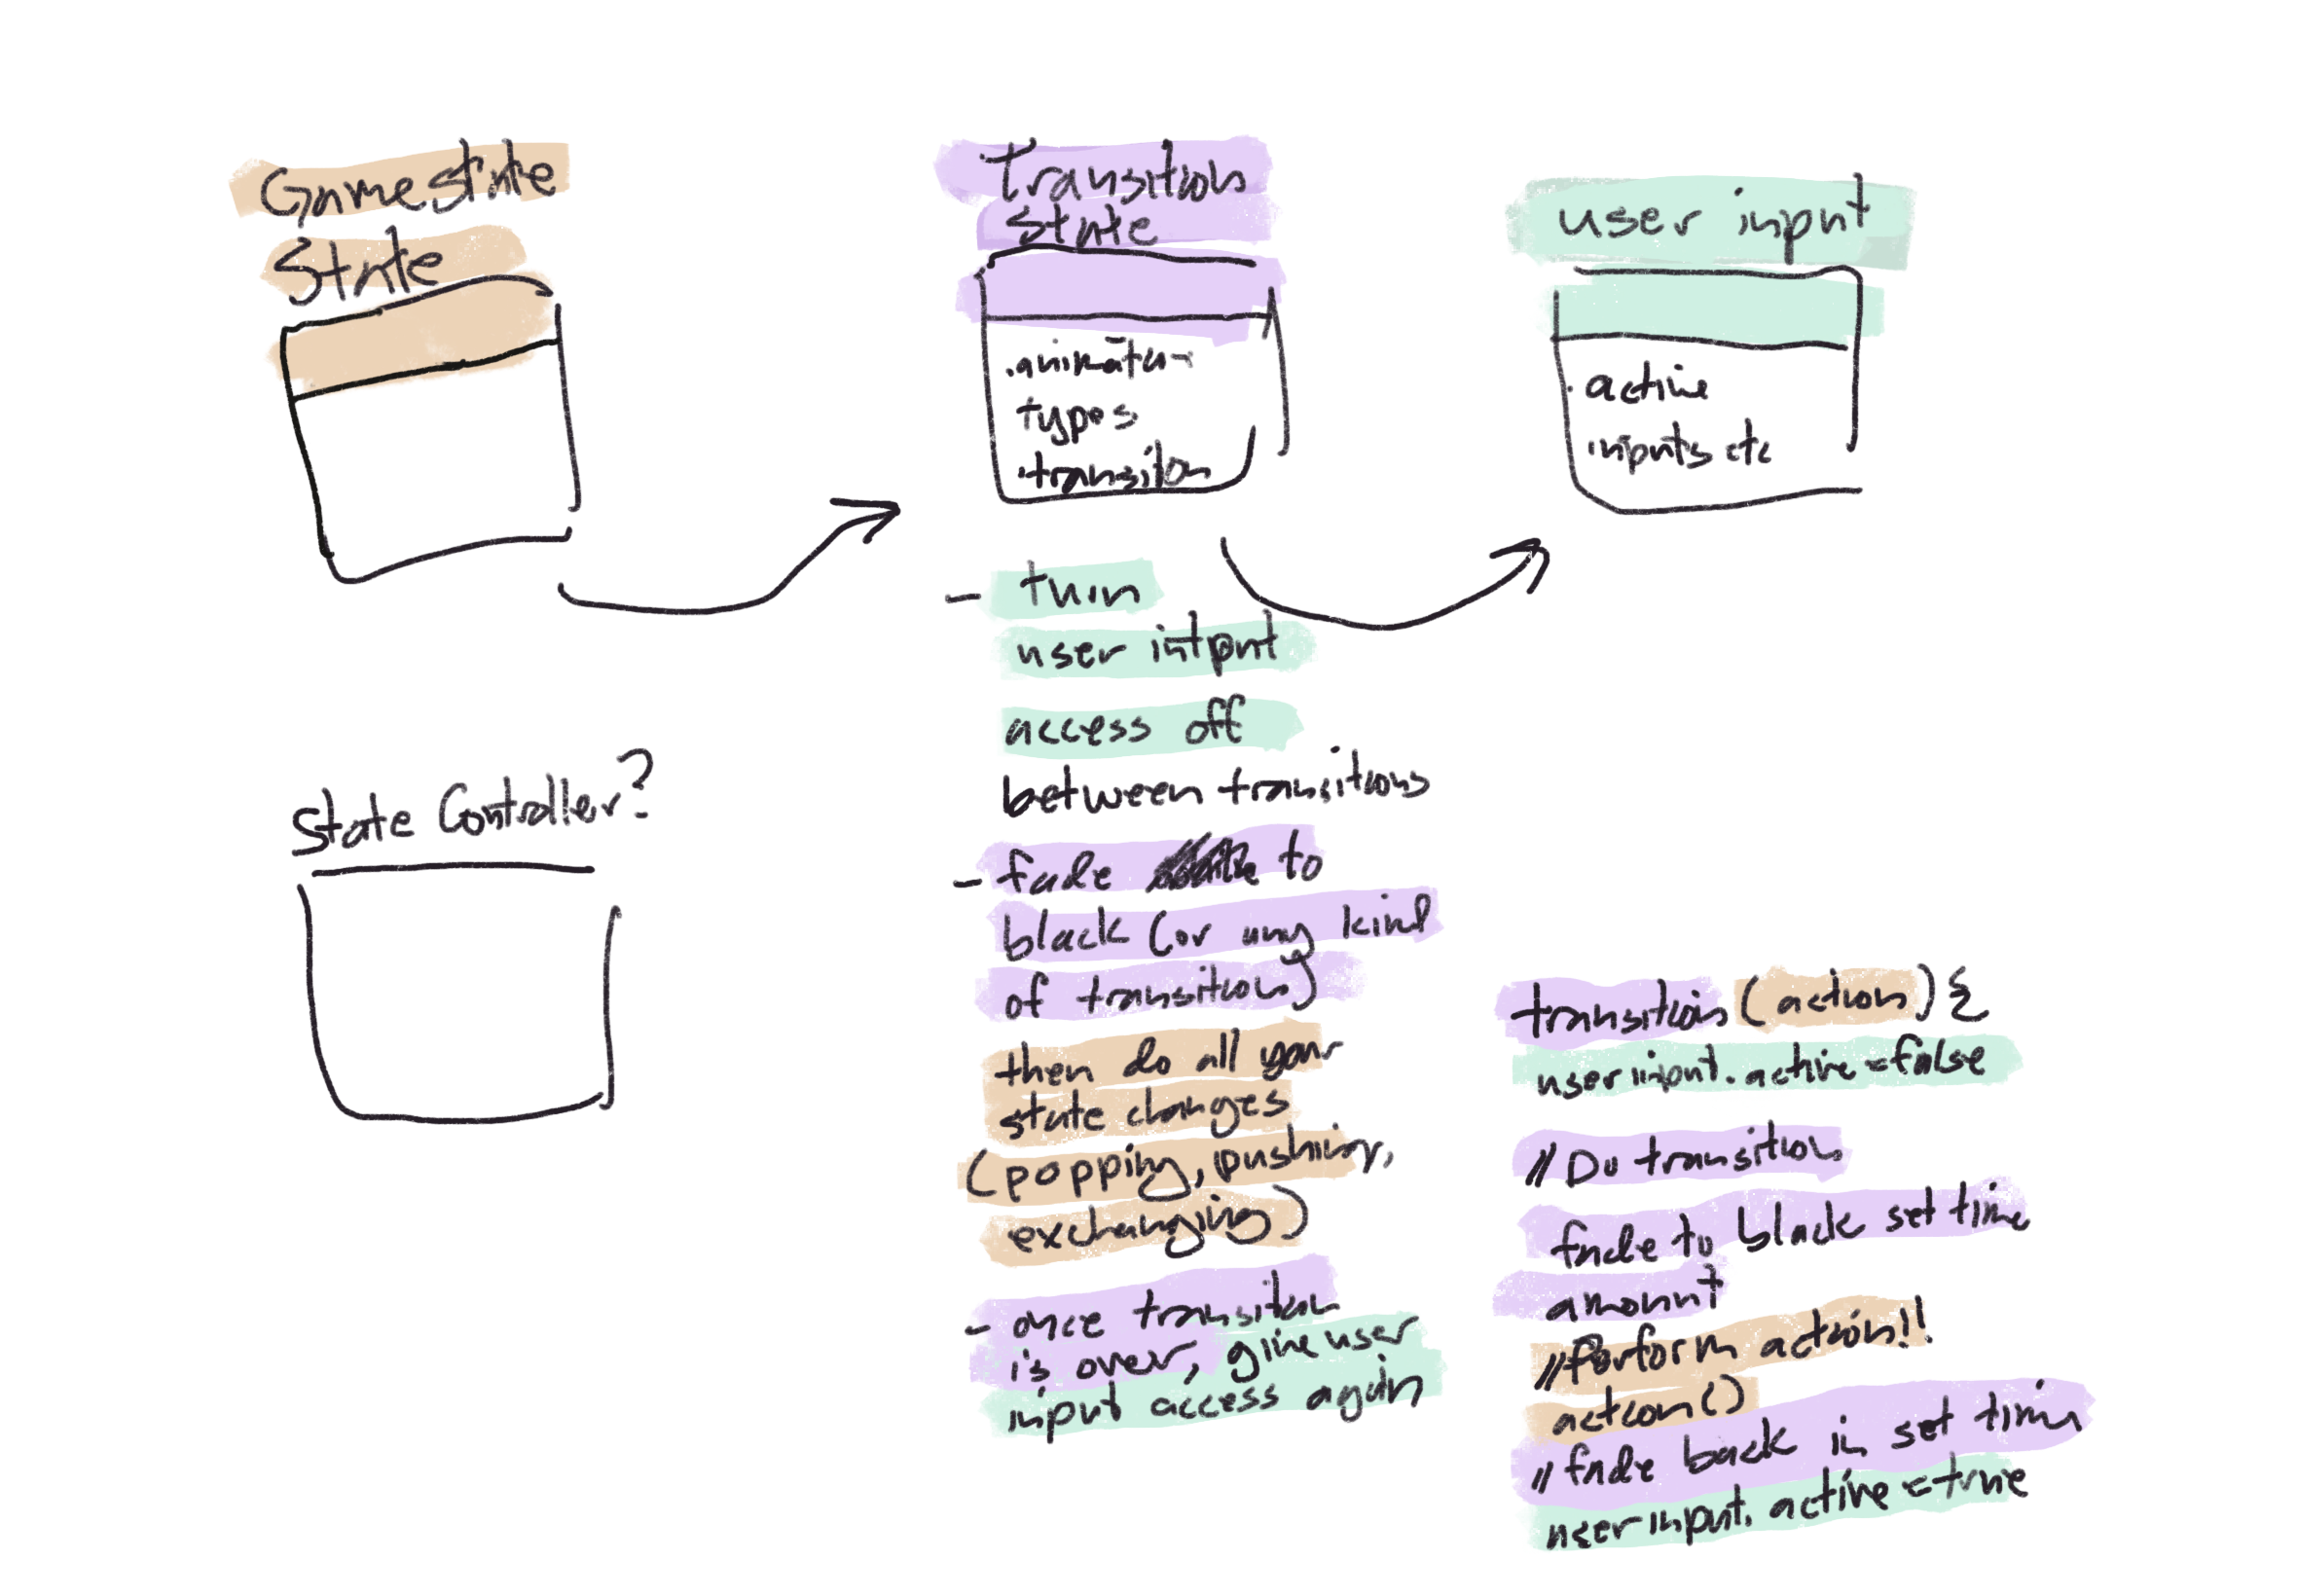 Gamestate
State
Transition
state
.animation
types
.transiton
user input
. active
inputs etc
- turn
user intput
access off
between transitions
- fade to
black (or any kind
of transition)
then do all your
state changes
(popping, pushing,
exchanging)
- once transiton
is over, give user
input access again
State Controller?
transition (action) {
user input. active = false
// Do transition
fade to black set time
amount
// Perform action!!
action()
// fade back in set time
user input. active = true